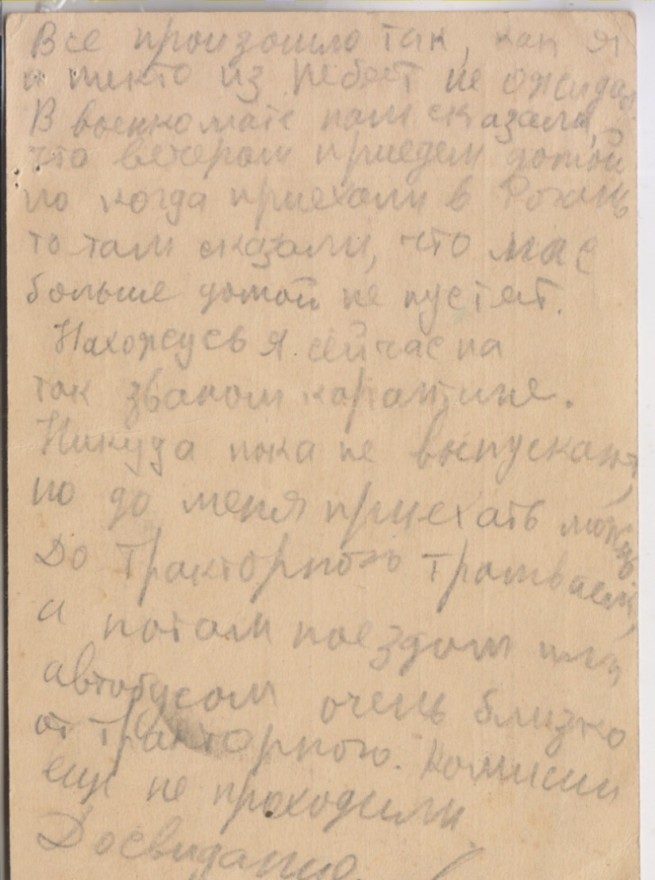 Все произошло так, как я
и никто из ребят не ожидал
В военкомате нам сказали,
что вечером приедем домой
но когда приехали в Рогань
то там сказали, что нас
больше домой не пустят.
Нахожусь я сейчас на
так званом карантине.
Никуда пока не выпускают,
но до меня приехать можно.
До Тракторного трамваем,
а потом поездом или
автобусом очень близко
от Тракторного. Комиссии
еще не проходили.
Досвидание.